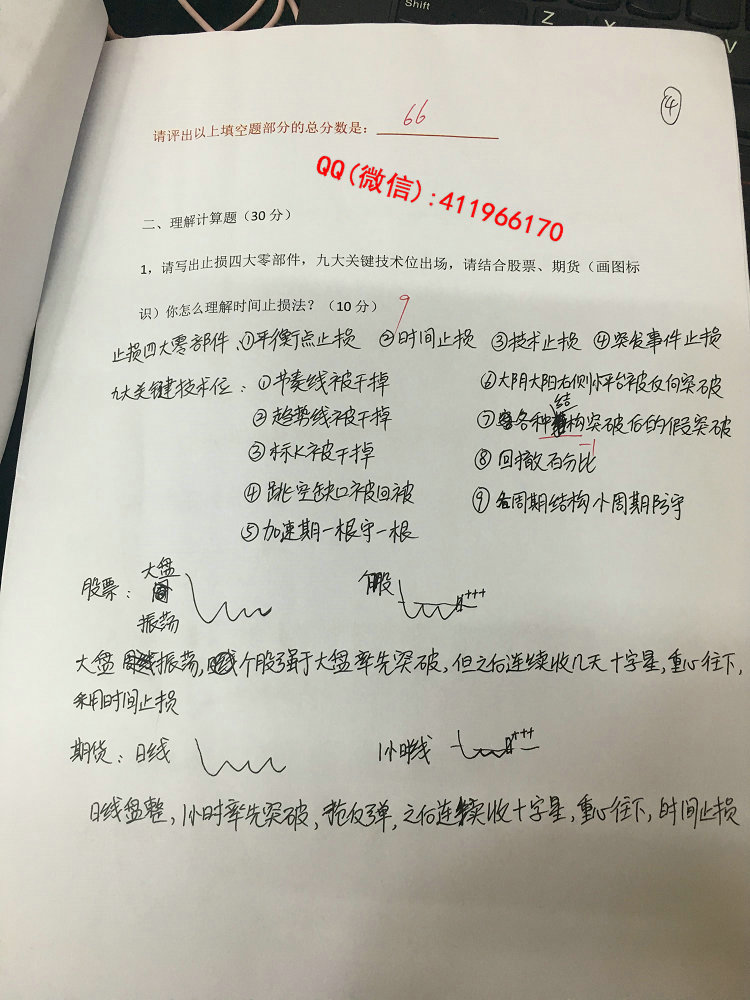 Shift
Z
X
V
④
请评出以上填空题部分的总分数是：66
QQ(微信):411966170
二、理解计算题（30 分）
1，请写出止损四大零部件，九大关键技术位出场，请结合股票、期货（画图标
识）你怎么理解时间止损法？（10 分）9
止损四大零部件、①平衡点止损 ②时间止损 ③技术止损 ④突发事件止损
九大关键技术位：①节奏线被干掉 ⑥大阴大阳右侧小平台被反向突破
②趋势线被干掉 ⑦各种结构突破后的假突破
-1
③标K被干掉 ⑧回撤百分比
④跳空缺口被回被 ⑨各周期结构小周期防守
⑤加速期一根守一根
股票：大盘 个股
振荡
大盘振荡，个股强于大盘率先突破，但之后连续收几天十字星，重心往下，
采用时间止损
期货：日线 1小时线
日线盘整，1小时率先突破，抢反弹，之后连续收十字星，重心往下，时间止损